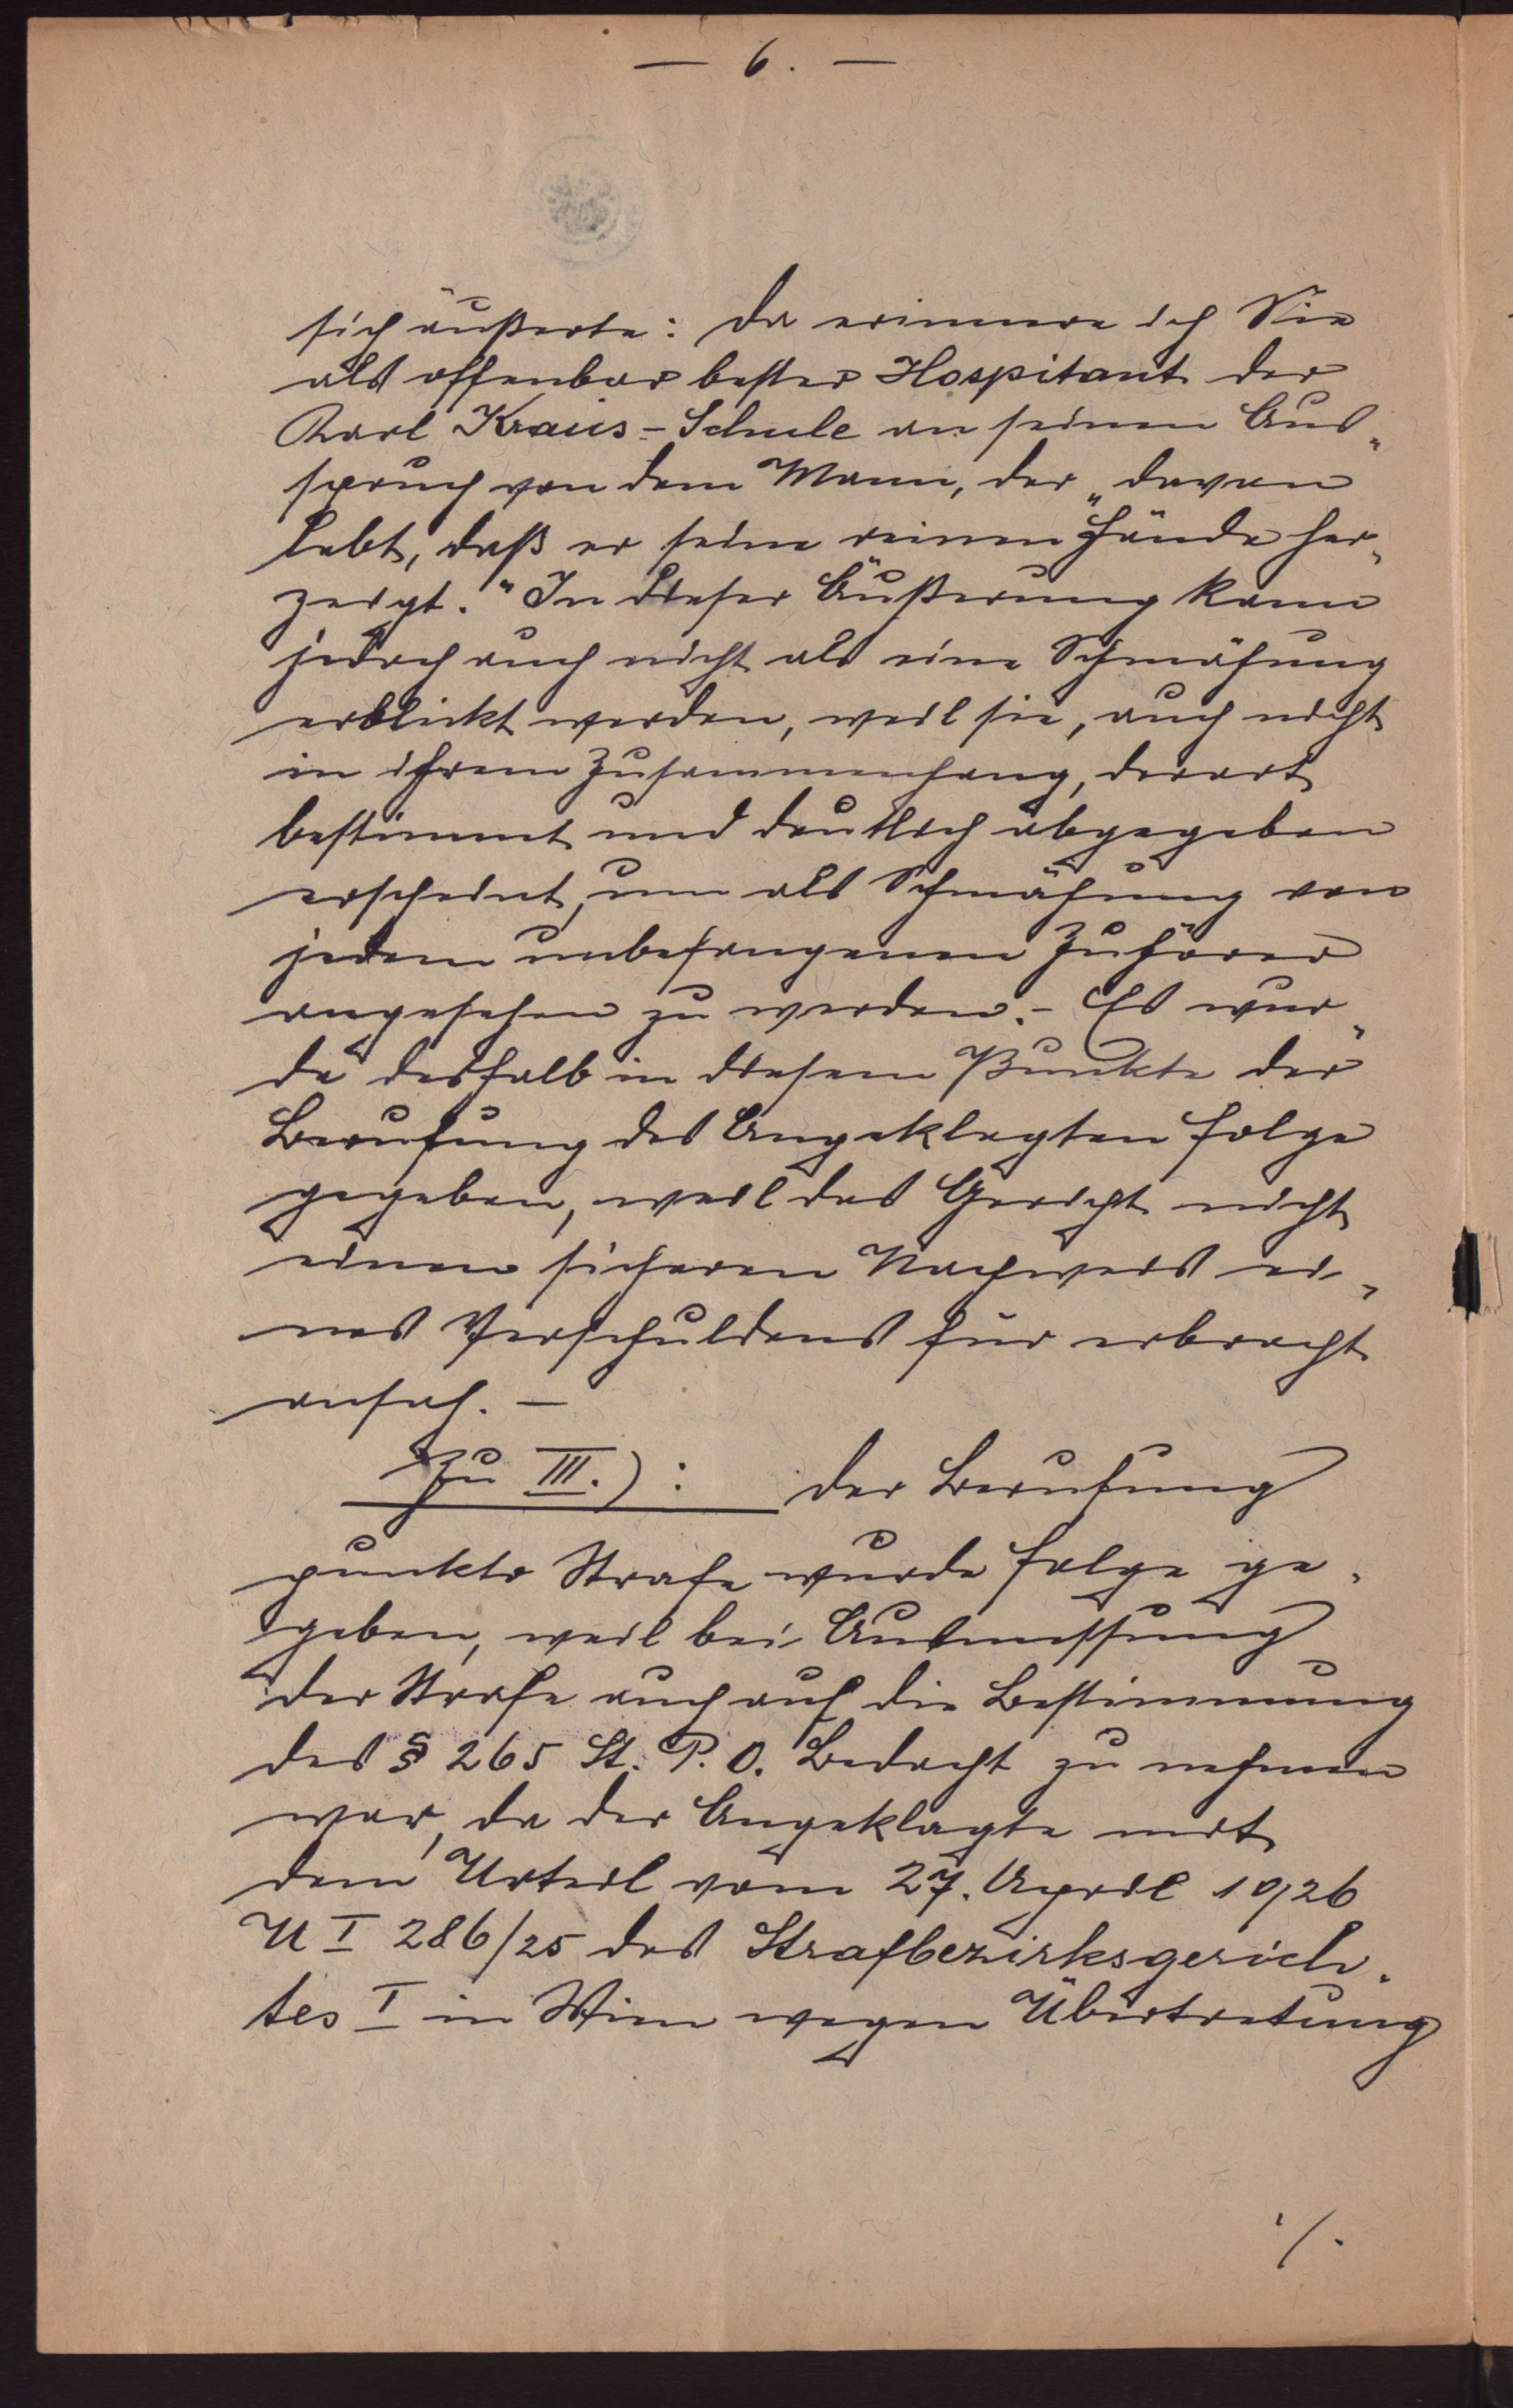 — 6. —
sich äußerte: da erinnere ich Sie
als offenbar bester Hospitant der
Karl Kraus-Schule an seinen Aus„
spruch von dem Mann, der „davon
lebt, daß er seine reinen Hände her„
zeigt.“ In dieser Äußerung kann
jedoch auch nicht als eine Schmähung
erblickt werden, weil sie, auch nicht
in ihrem Zusammenhang, derart
bestimmt und deutlich abgegeben
erscheint, um als Schmähung von
jedem unbefangenen Zuhörer
angesehen zu werden. – Es wur„
de deshalb in diesem Punkte der
Berufung des Angeklagten Folge
gegeben, weil das Gericht nicht
einen sicheren Nachweis ei„
nes Verschuldens für erbracht
ansah. —
Zu III.): Der Berufung
punkto Strafe wurde Folge ge„
geben, weil bei Ausmessung
der Strafe auch auf die Bestimmung
des § 265 St. P. O. Bedacht zu nehmen
war, da der Angeklagte mit
dem Urteil vom 27. April 1926
U I 286/25 des Strafbezirksgerich„
tes I in Wien wegen Übertretung
./.